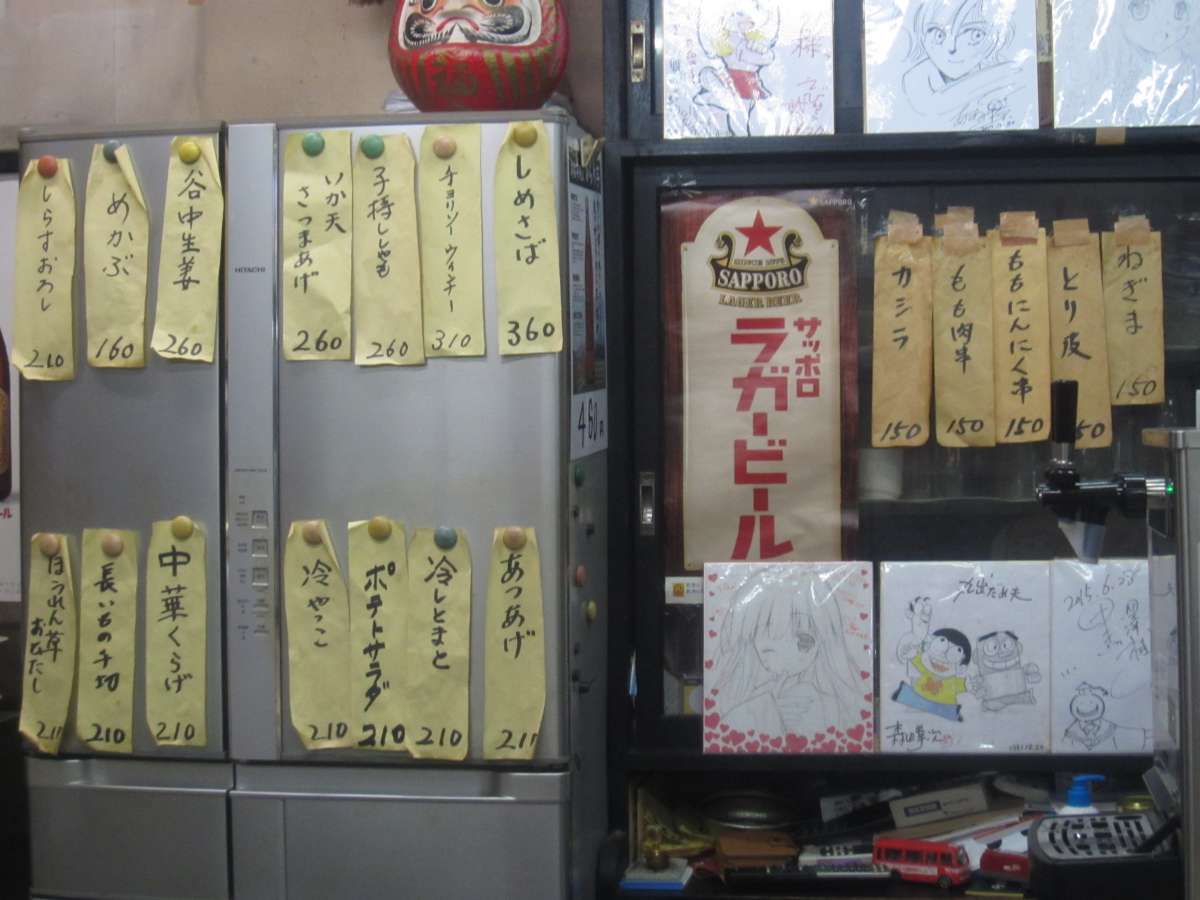 しめさば
360
チョリソーウィンナー
310
子持ししゃも
260
いか天
さつまあげ
260
谷中生姜
260
めかぶ
160
しらすおろし
210
あつあげ
冷しとまと
210
ポテトサラダ
210
冷やっこ
210
中華くらげ
210
長いもの千切
210
ほうれん草
おひたし
HITACHI
460
SAPPORO
SINCE 1876
SAPPORO
LAGER BEER
サッポロ
ラガービール
ねぎま
150
とり皮
50
ももにんにく串
150
もも肉串
150
カシラ
150
2015.6.23